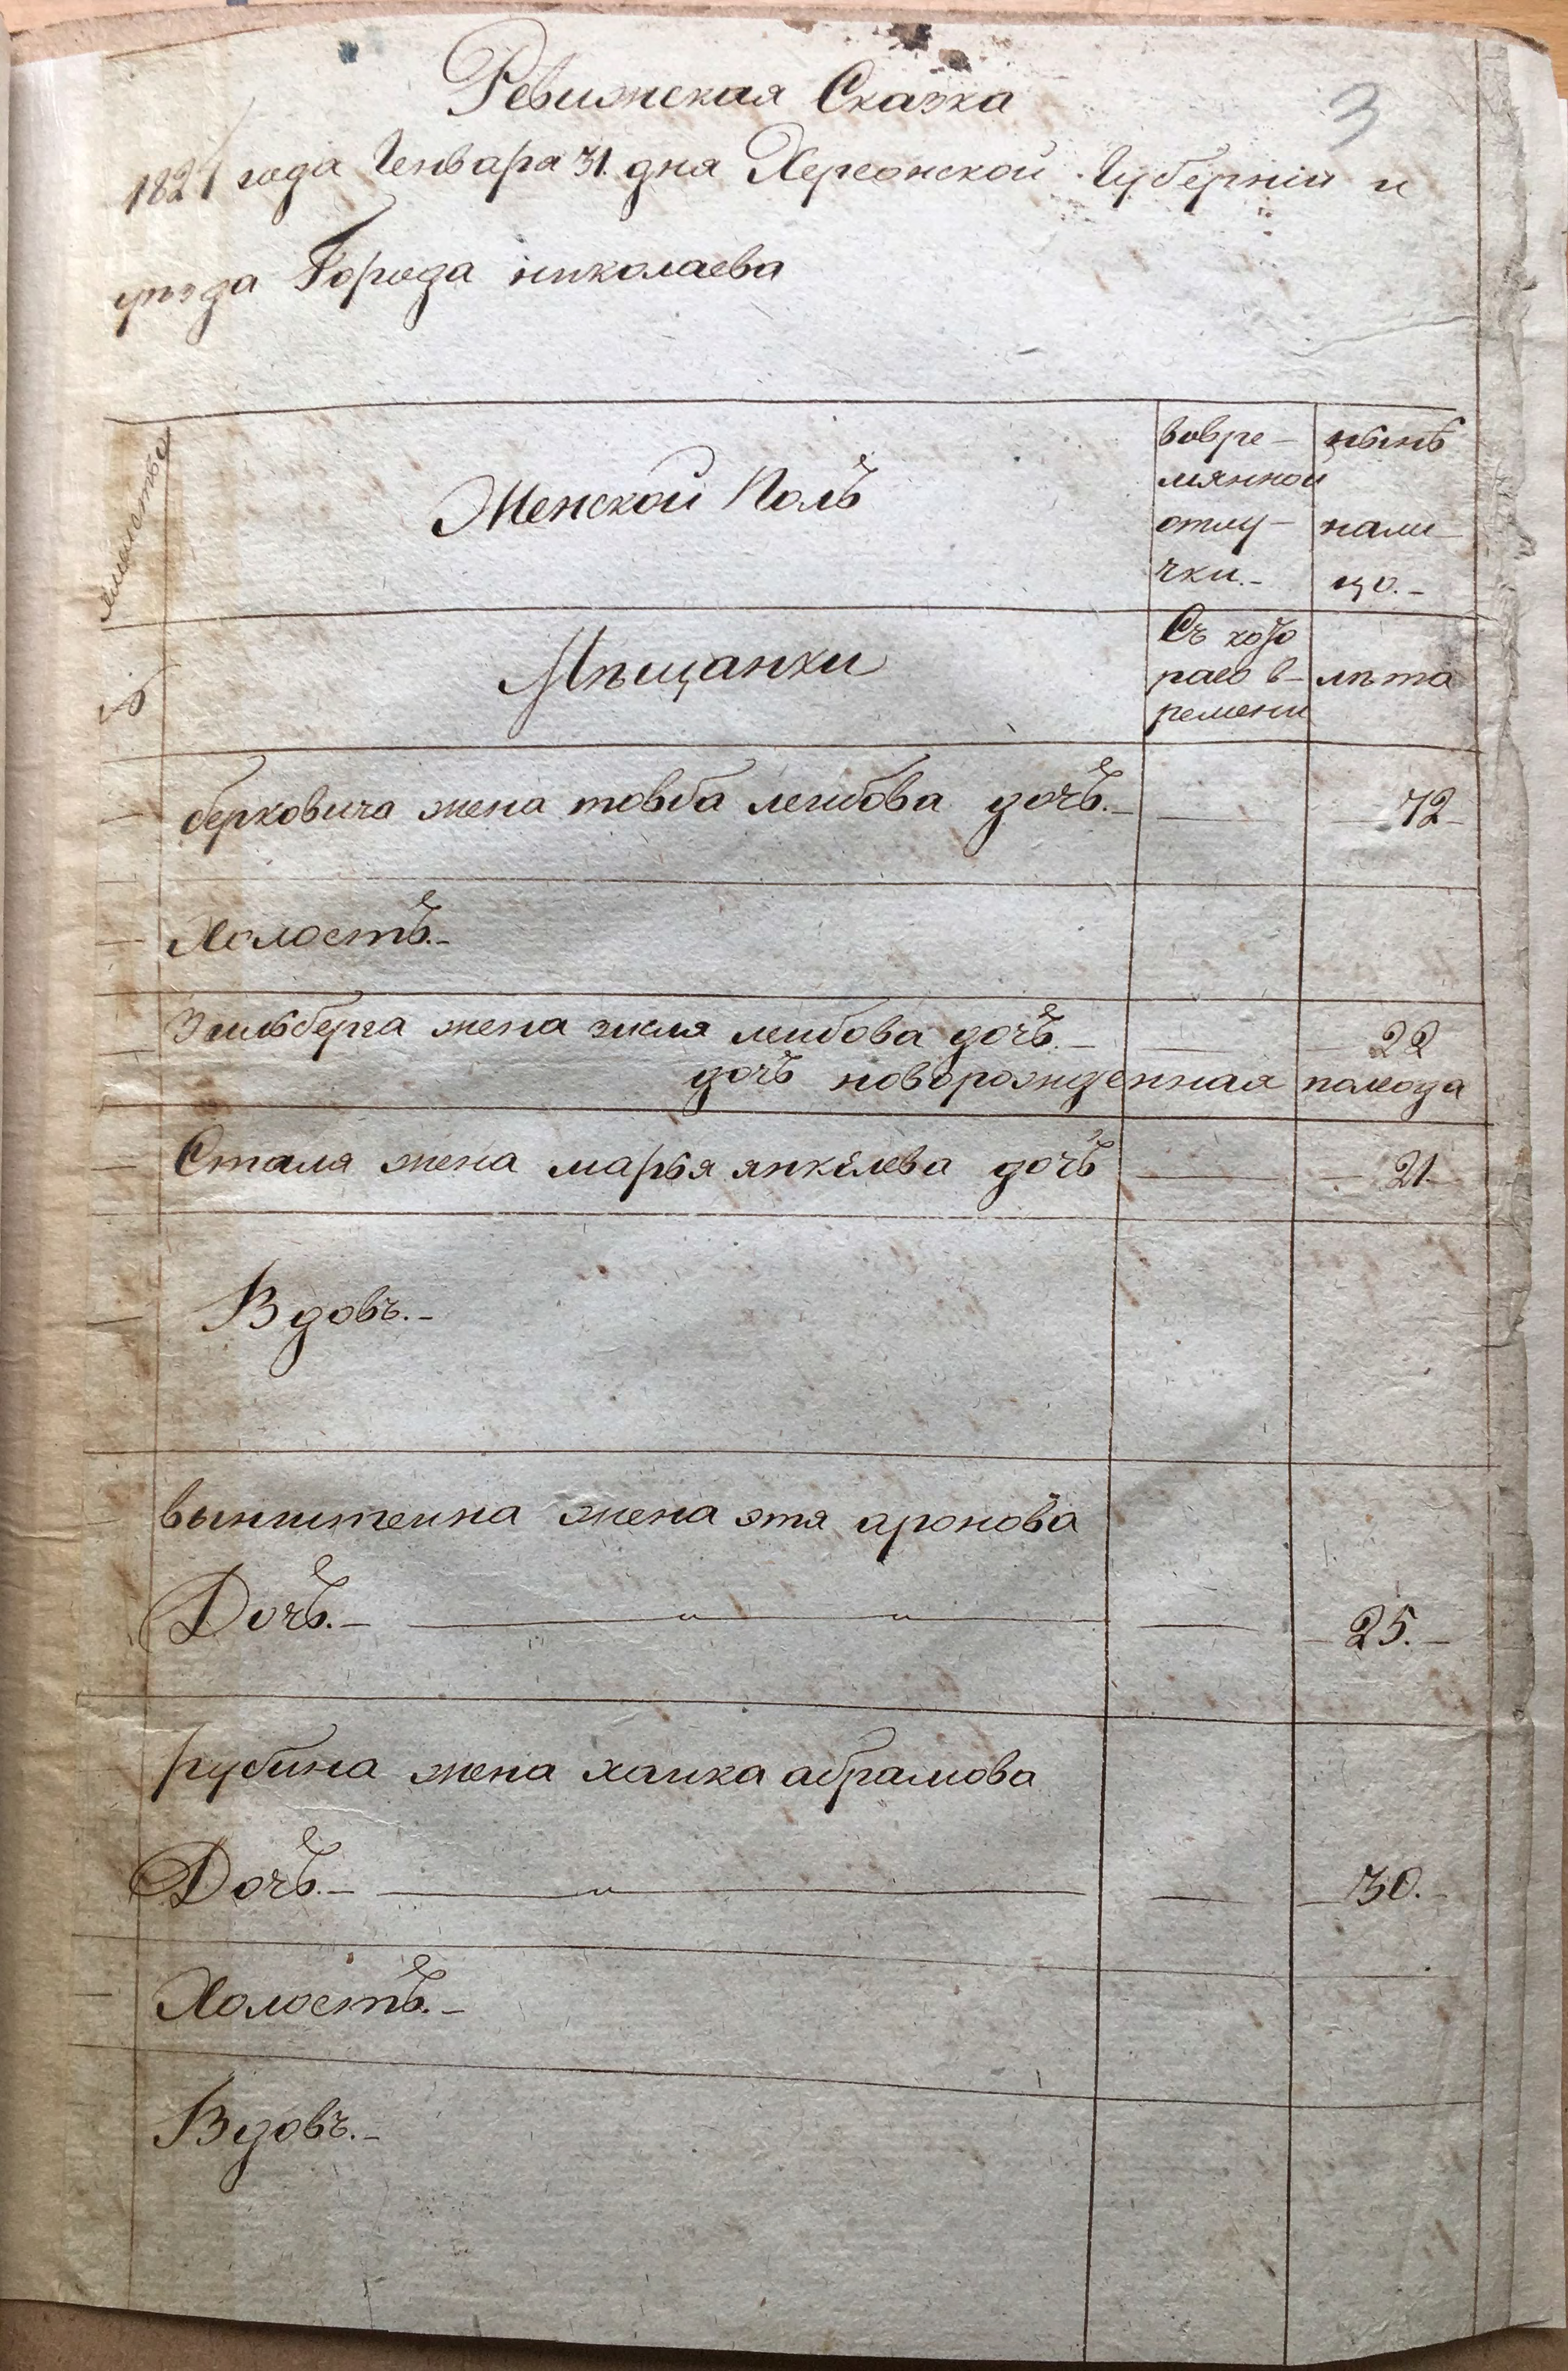 Ревижская Сказка
3
1821 года Генваря 31. дня Херсонской Губерніи и
уѣзда Города николаева
Женской Полъ
вовре-
мянной
отлу-
чки.-
нынѣ
нали-
цо.-
№
Мѣщанки
Съ кото
раго в-
ремени
лѣта
берковича жена товба леибова дочь.- — 42
Холостъ.-
Зильберга жена зисля леибова дочь.- — 22
дочь новорожденная полгода
Сталя жена марья янкелева дочь — 21.-
Вдовъ.-
вынштеина жена этя аронова
Дочь.- — 25.-
рубина жена хаика абрамова
Дочь.- — 30.-
Холостъ.-
Вдовъ.-